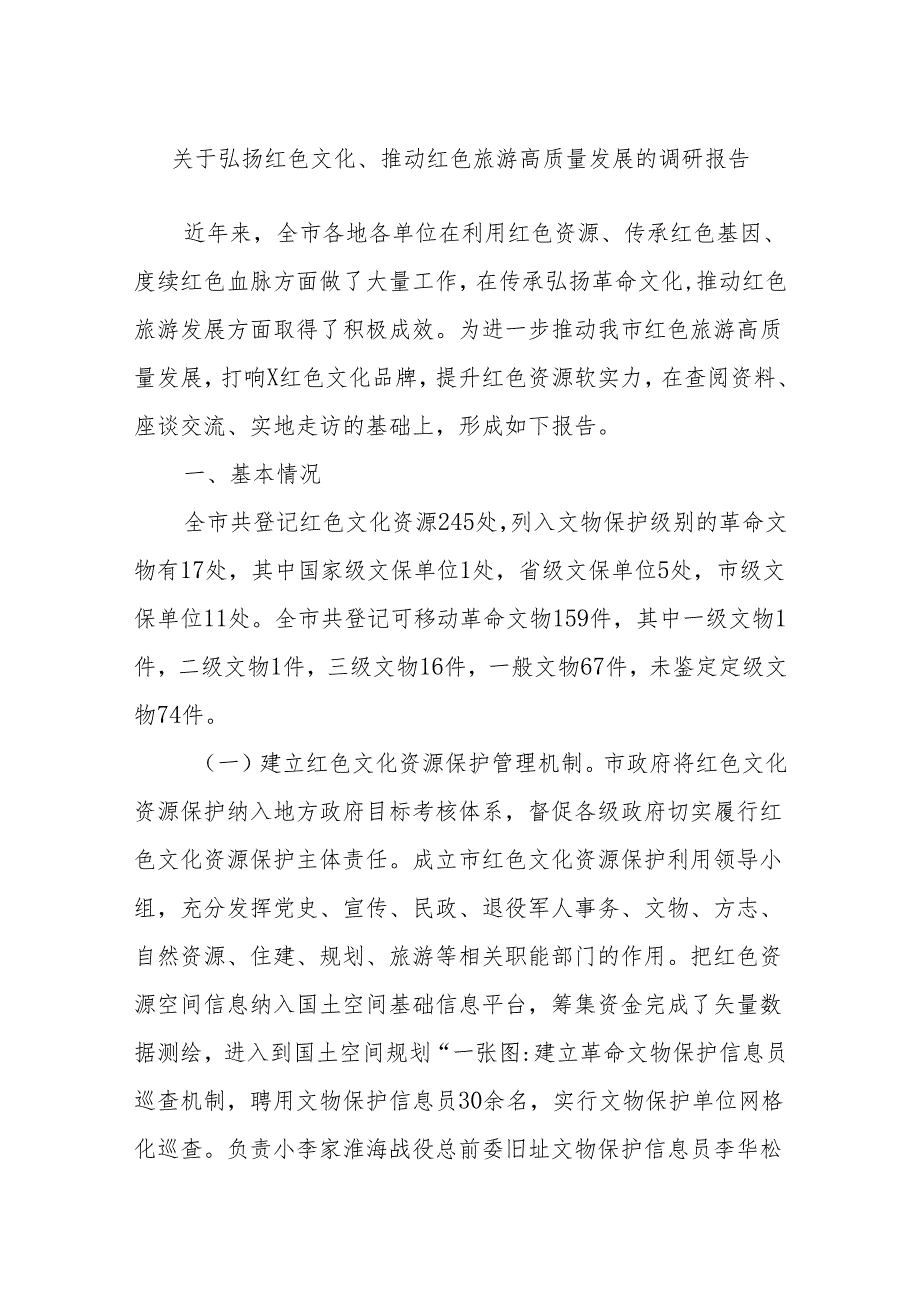 关于弘扬红色文化、推动红色旅游高质量发展的调研报告
近年来，全市各地各单位在利用红色资源、传承红色基因、
度续红色血脉方面做了大量工作，在传承弘扬革命文化,推动红色
旅游发展方面取得了积极成效。为进一步推动我市红色旅游高质
量发展，打响X红色文化品牌，提升红色资源软实力，在查阅资料、
座谈交流、实地走访的基础上，形成如下报告。
一、基本情况
全市共登记红色文化资源245处,列入文物保护级别的革命文
物有17处，其中国家级文保单位1处，省级文保单位5处，市级文
保单位11处。全市共登记可移动革命文物159件，其中一级文物1
件，二级文物1件，三级文物16件，一般文物67件，未鉴定定级文
物74件。
（一）建立红色文化资源保护管理机制。市政府将红色文化
资源保护纳入地方政府目标考核体系，督促各级政府切实履行红
色文化资源保护主体责任。成立市红色文化资源保护利用领导小
组，充分发挥党史、宣传、民政、退役军人事务、文物、方志、
自然资源、住建、规划、旅游等相关职能部门的作用。把红色资
源空间信息纳入国土空间基础信息平台，筹集资金完成了矢量数
据测绘，进入到国土空间规划“一张图:建立革命文物保护信息员
巡查机制，聘用文物保护信息员30余名，实行文物保护单位网格
化巡查。负责小李家淮海战役总前委旧址文物保护信息员李华松